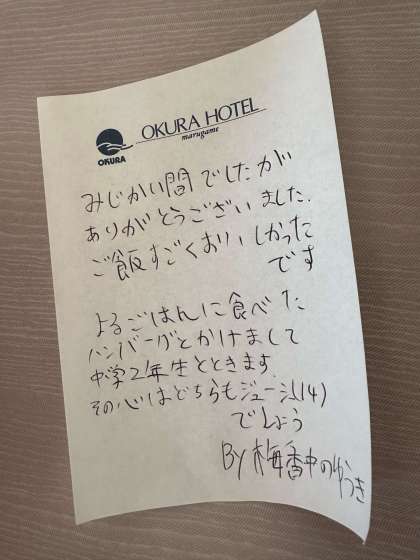 OKURA
OKURA HOTEL
marugame
みじかい間でしたが
ありがとうございました.
ご飯すごくおいしかった
です
よるごはんに食べた
ハンバーグとかけまして
中学2年生とときます.
その心はどちらもジューシー(14)
でしょう
By 梅香中のゆうき